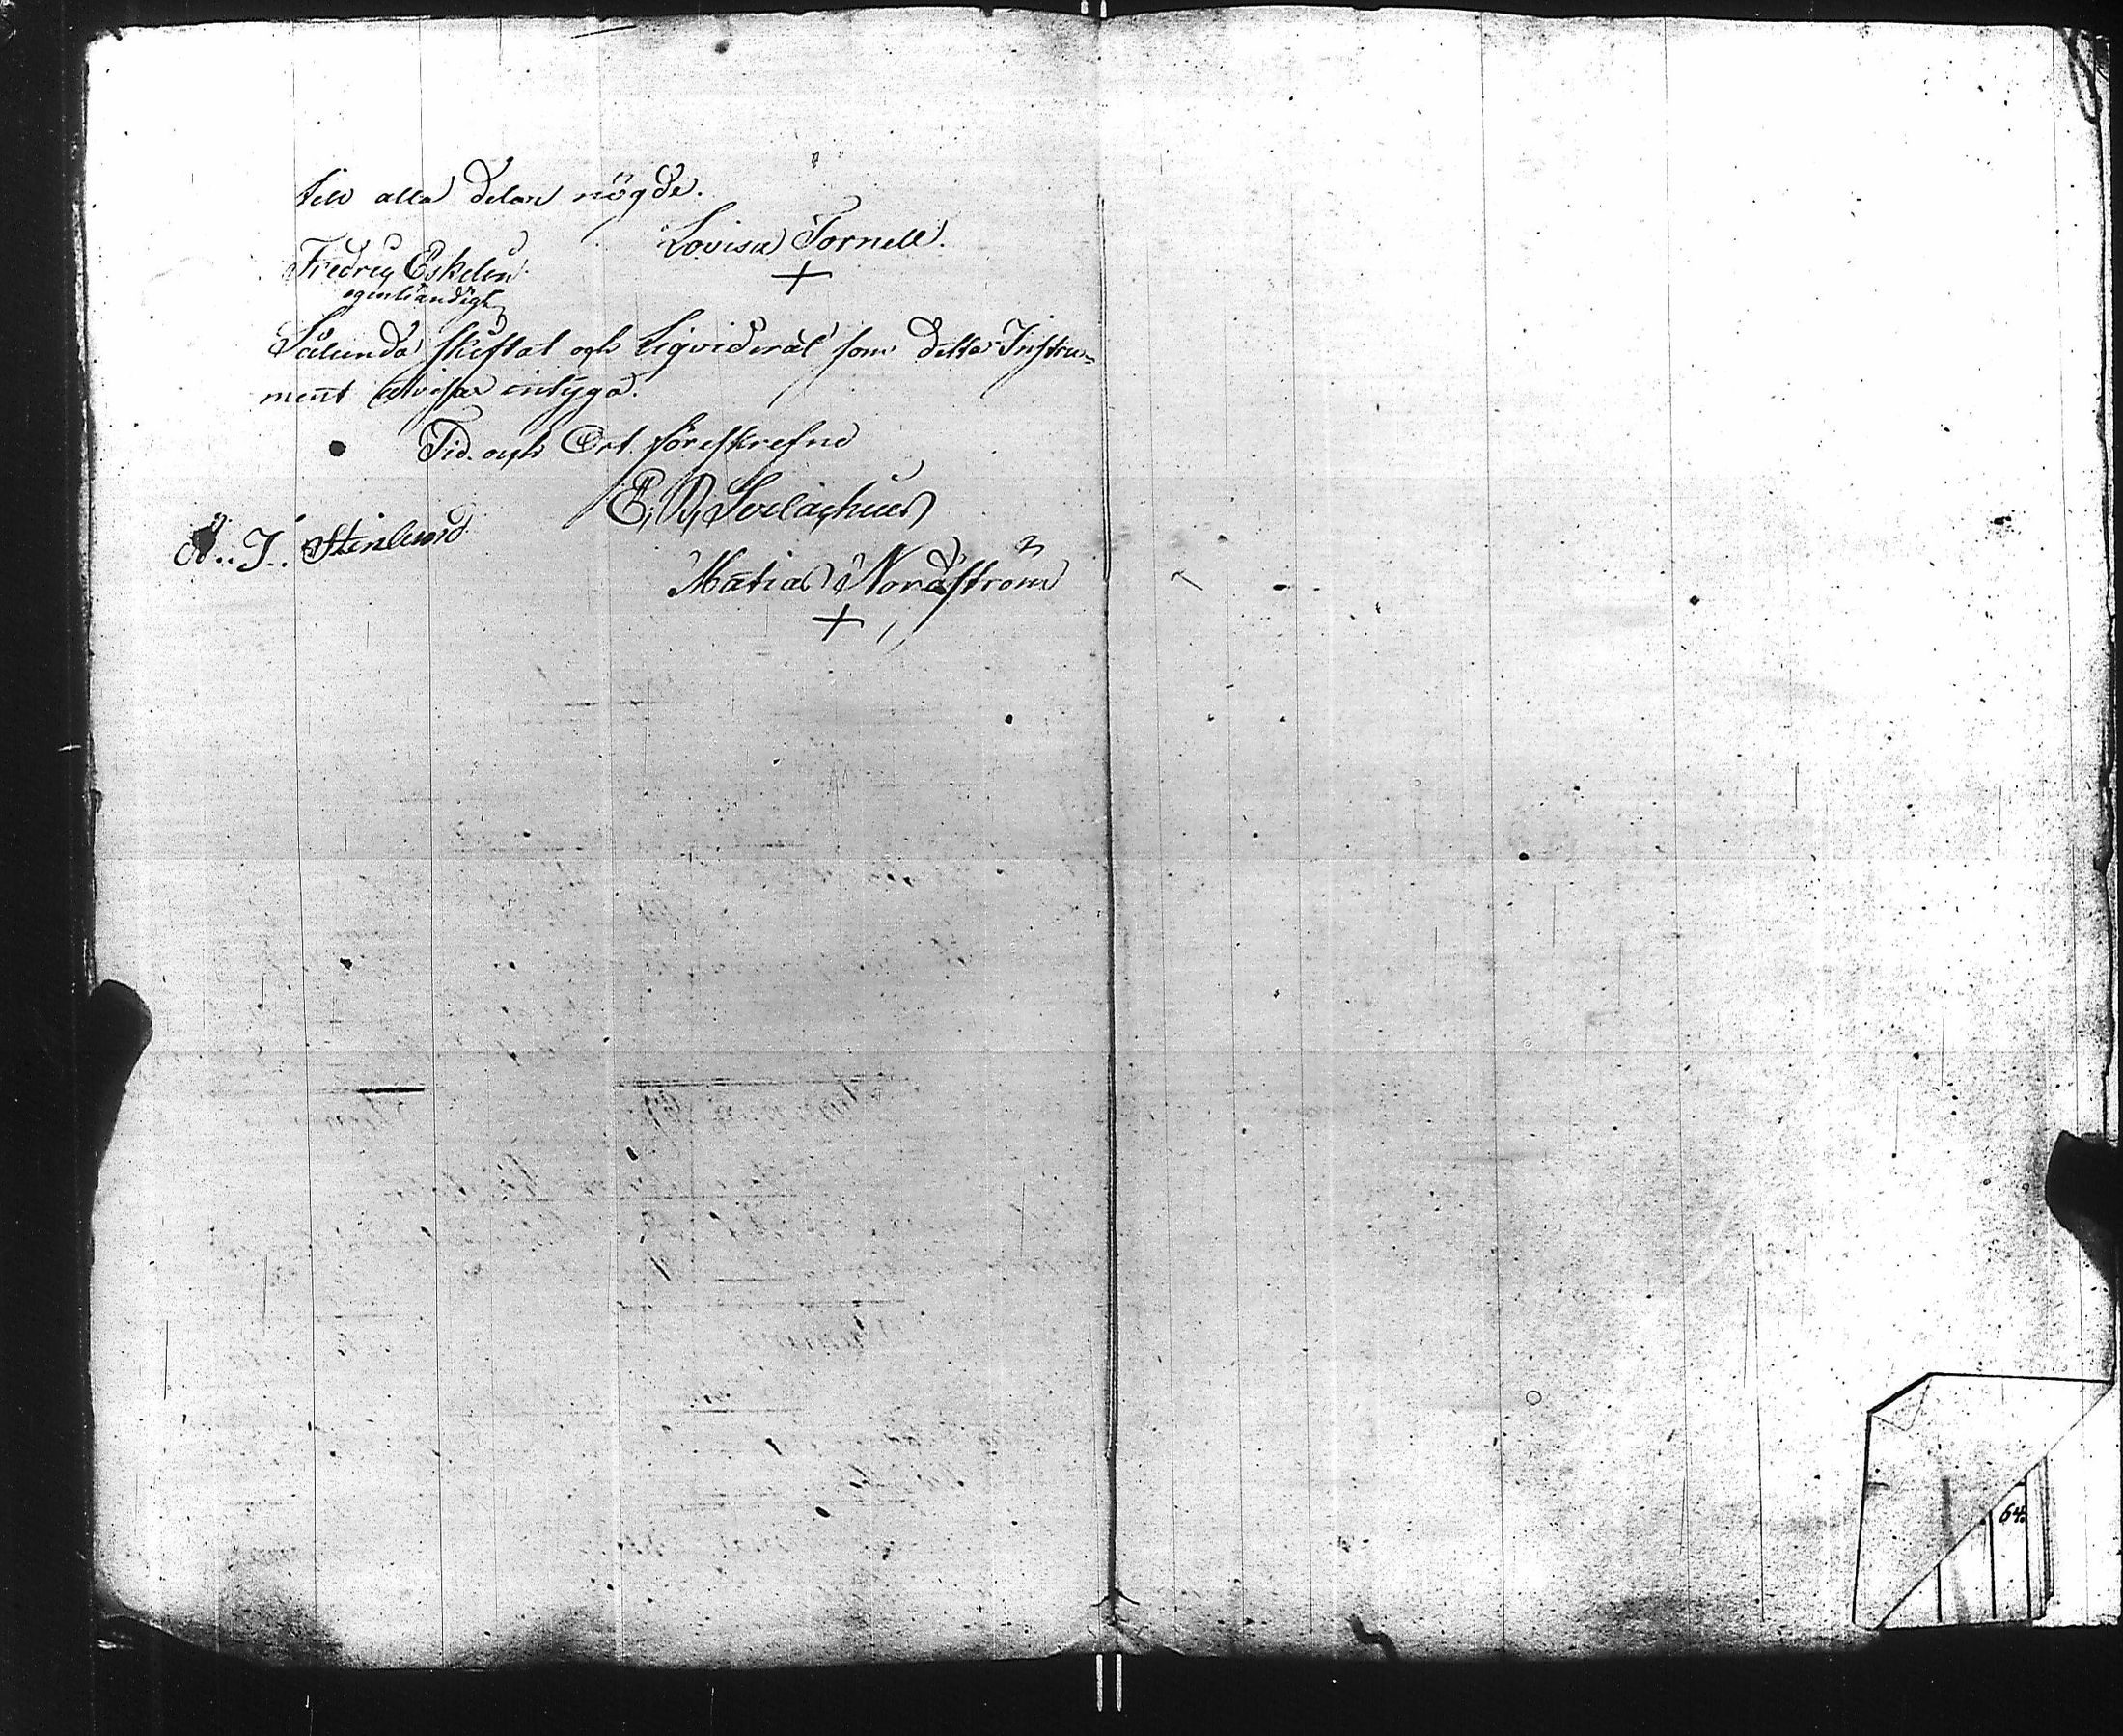 till alla delar nögde.
Lovisa Tornell.
+
Fredrig Eskelin
egenhändigt
Sålunda skiftat och Liqviderat som detta Instru=
ment utvisar intyga.
Tid och Ort föreskrefne
E. D.
A.. J.. Stenlund
Matias Nordström
+
64.